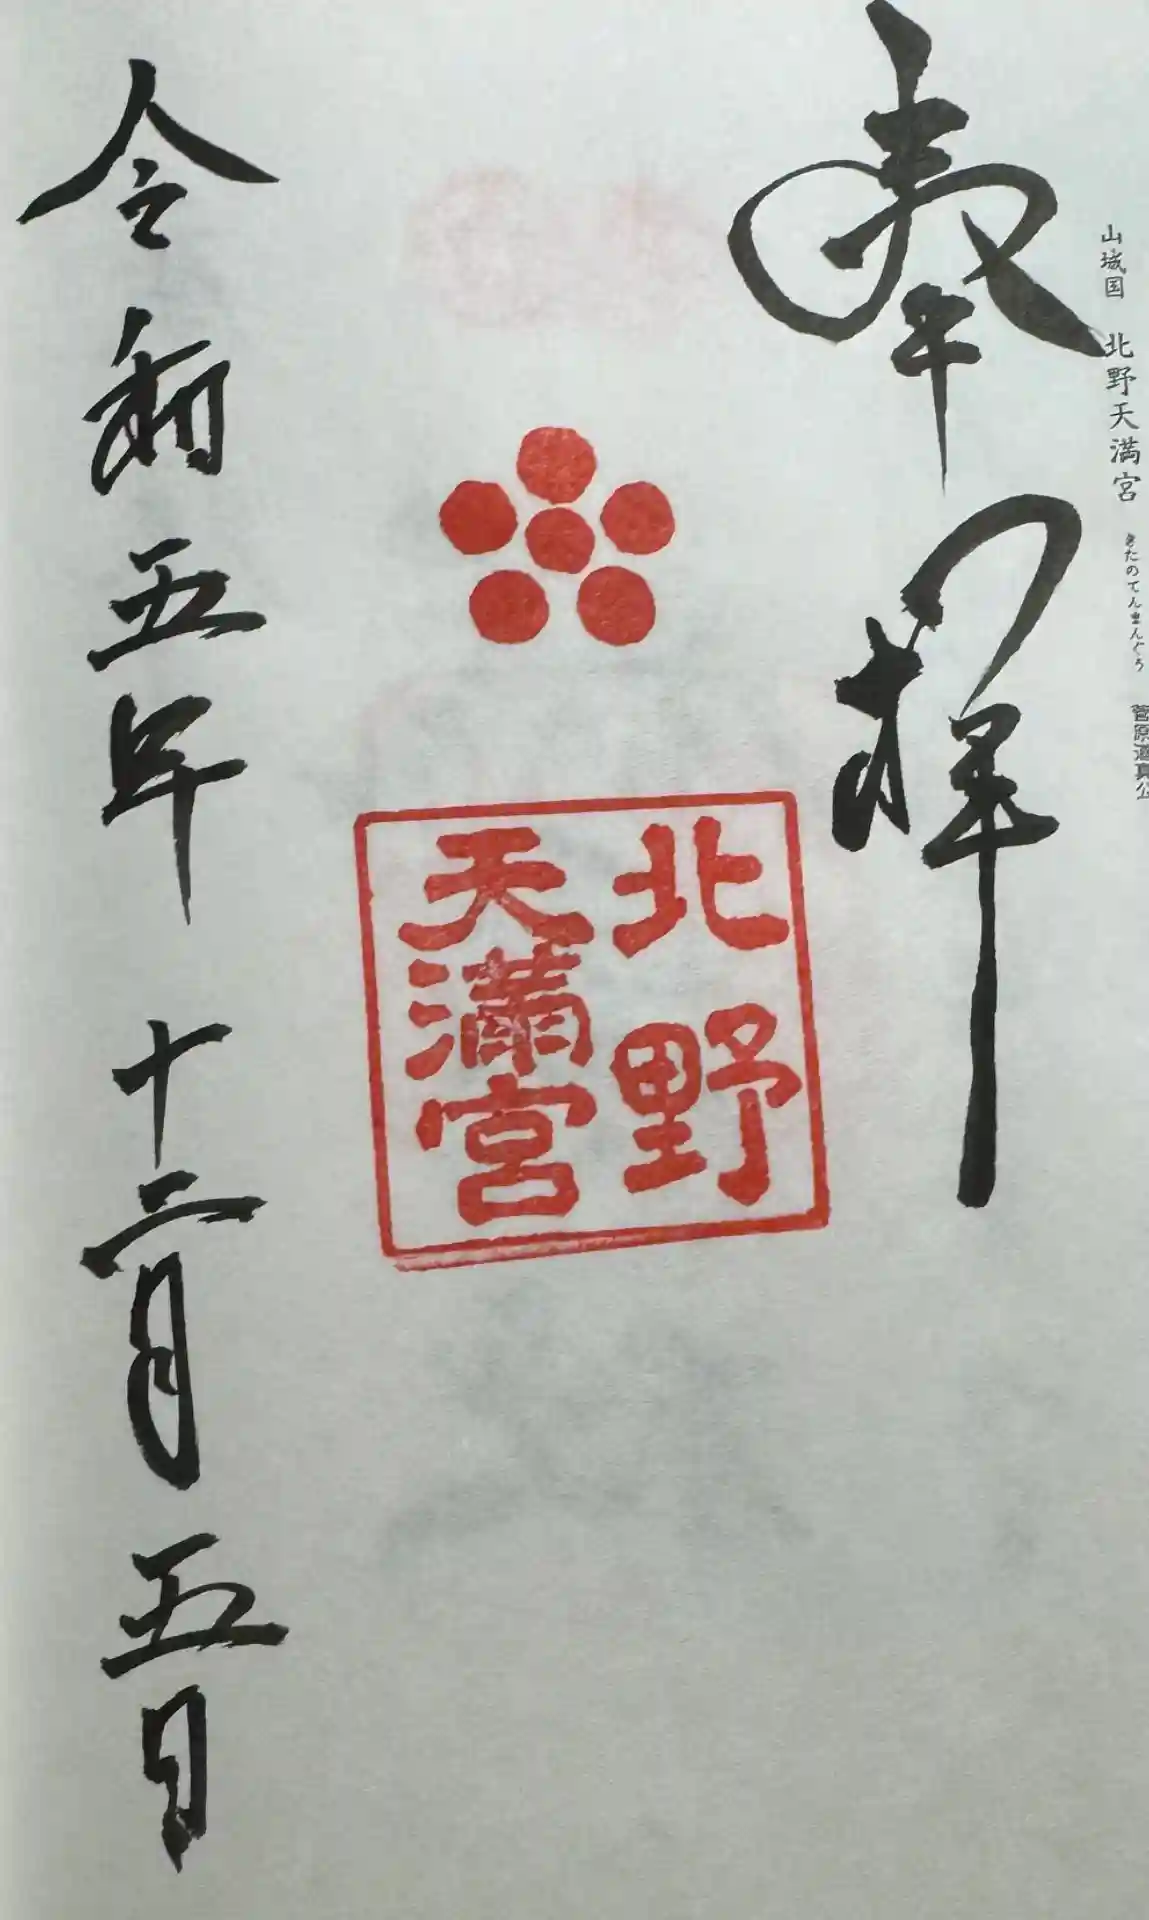 山城国 北野天満宮 きたのてんまんぐう 菅原道真公
奉拝
北野
天満宮
令和五年 十二月五日